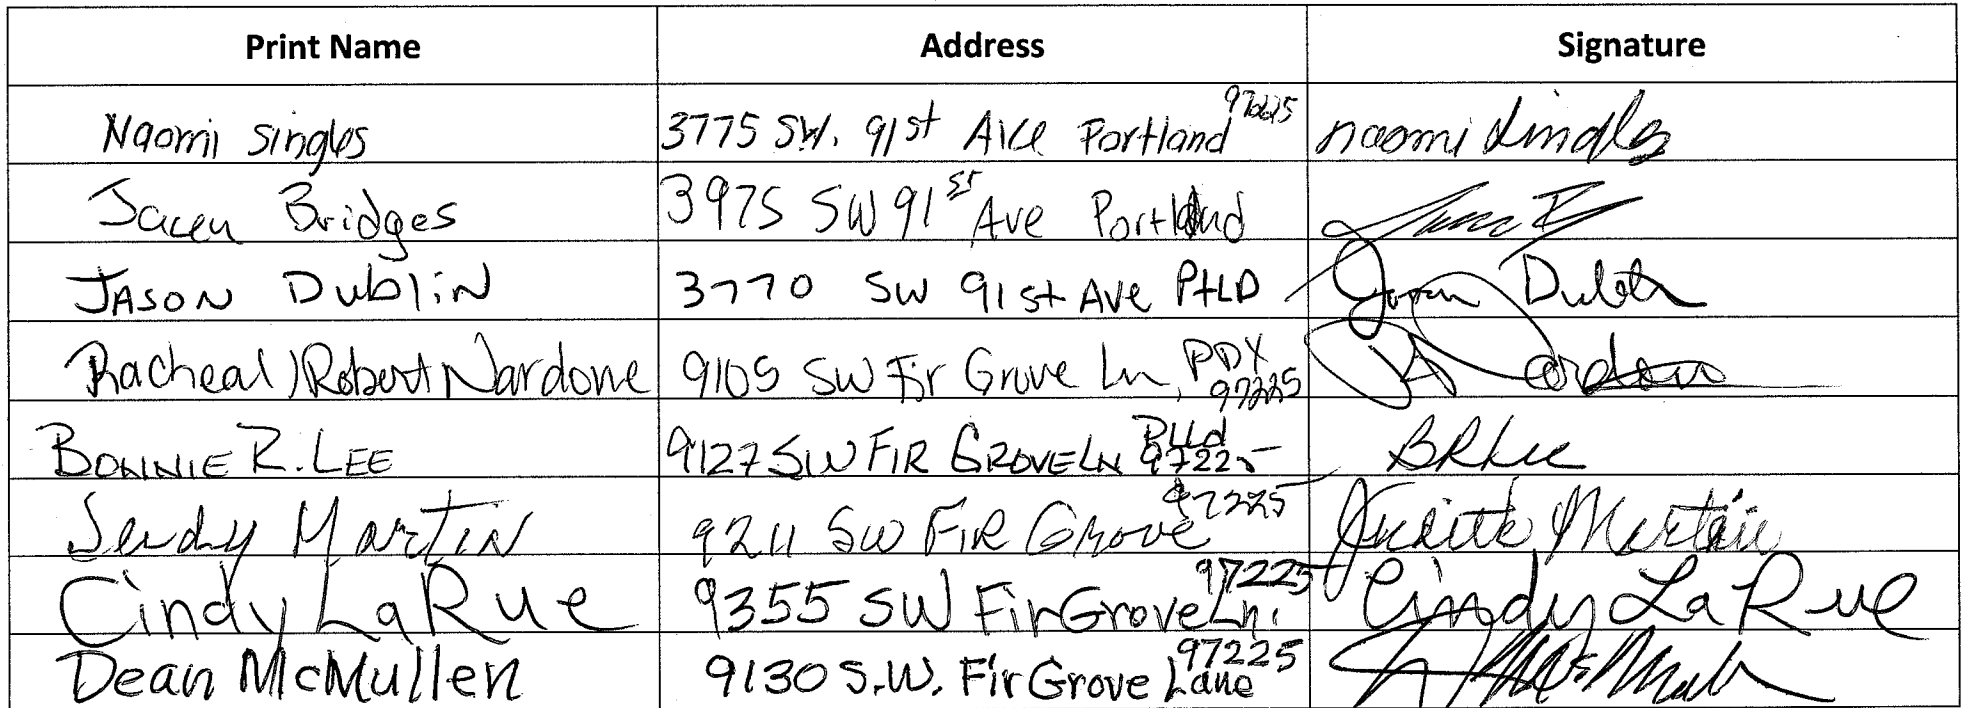 Print Name Address Signature
Naomi Singles 3775 SW. 91st Ave Portland 97225 naomi
Jacen Bridges 3975 SW 91st Ave Portland
JASON Dublin 3770 SW 91st Ave PtLD Jason Dublin
Racheal / Robert Nardone 9105 SW Fir Grove Ln, PDX 97225
BONNIE R. LEE 9127 SW FIR GROVE LN Ptld 97225 BRLee
Martin 9211 SW FIR Grove 97225 Judith Martin
Cindy LaRue 9355 SW Fir Grove Ln. 97225 Cindy LaRue
Dean McMullen 9130 S.W. Fir Grove Lane 97225